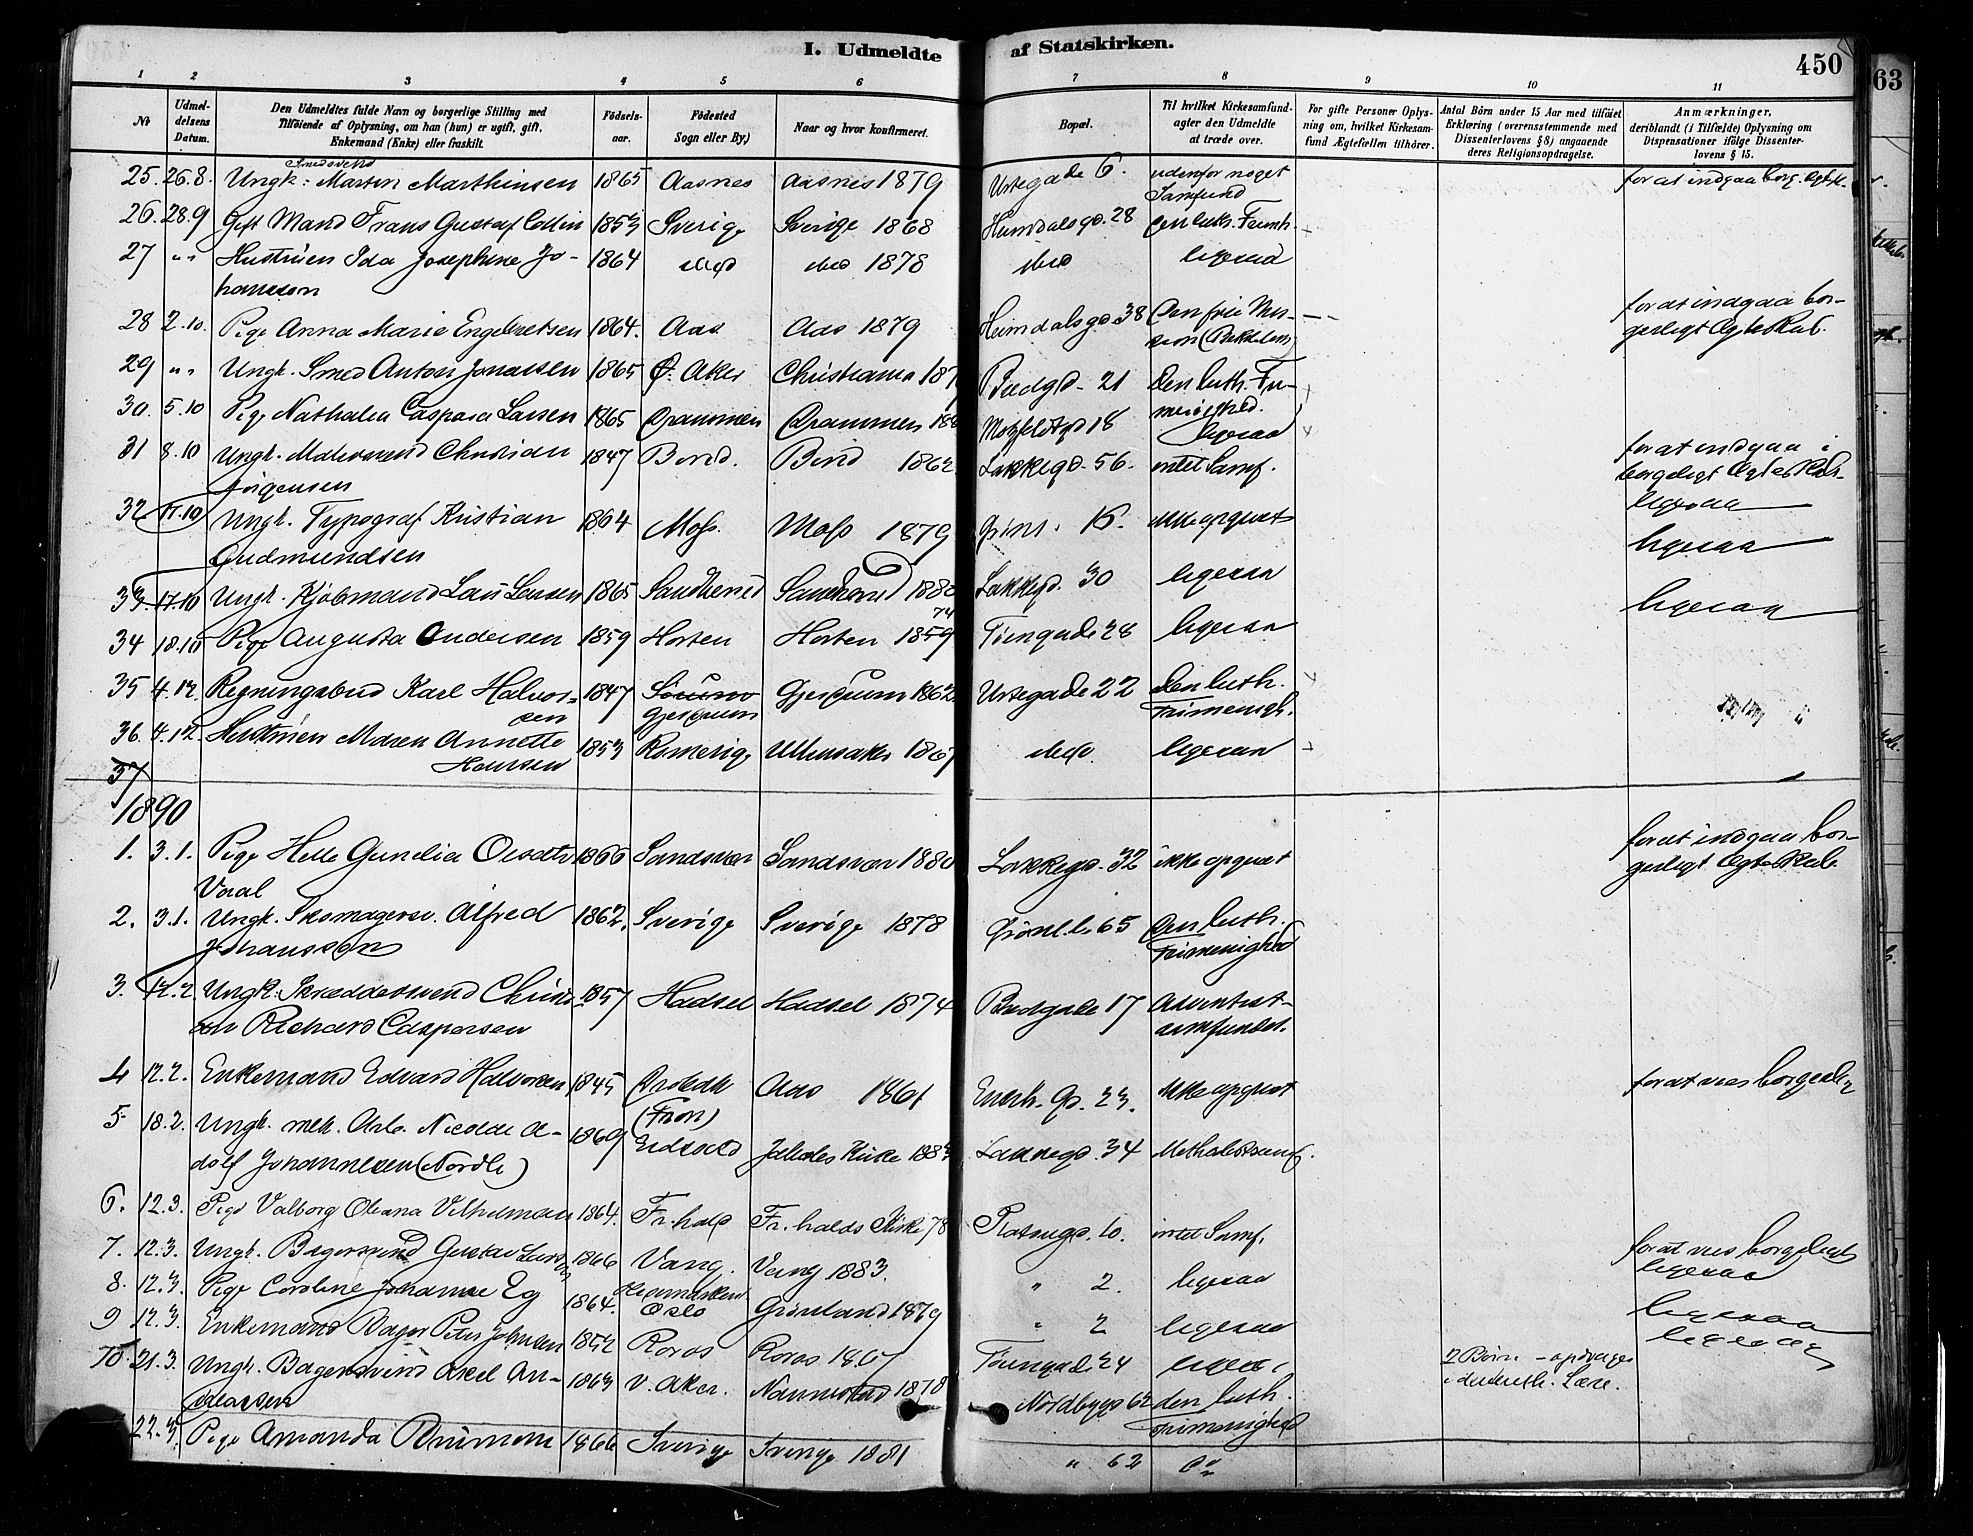 I. Udmeldte af Statskirken.
450
63
1 2 3 4 5 6 7 8 9 10 11
No
Udmeldelsens Datum.
Den Udmeldtes fulde Navn og borgerlige Stilling med
Tilføiende af Oplysning, om han (hun) er ugift, gift,
Enkemand (Enke) eller fraskilt.
Fødselsaar.
Fødested
Sogn eller By.)
Naar og hvor konfirmeret.
Bopæl.
Til hvilket Kirkesamfund
agter den Udmeldte
at træde over.
For gifte Personer Oplysning om, hvilket Kirkesamfund Ægtefællen tilhører.
Antal Børn under 15 Aar med tilføiet
Erklæring (overensstemmende med
Dissenterlovens § 8) angaaende
deres Religionsopdragelse.
Anmærkninger,
deriblandt (i Tilfælde) Oplysning om
Dispensationer ifølge Dissenterlovens § 15.
Smedsvend
25. 26.8. Ungk: Martin Marthinsen 1865 Aasnes Aasnes 1879 Urtegade 6. udenfor noget Samfund for at indgaa borg. Ægtsk.
26. 28.9 Gift Mand Frans Gustaf Collin 1853 Sverige Sverige 1868 Heimdalsgd. 28 Den luth. Frimh.
27 " " Hustruen Ida Josephine Johansson 1864 ibid ibid 1878 ibid ligesaa
28 2.10. Pige Anna Marie Engebretsen 1864. Aas Aas 1879 Heimdalsgd. 38 Den frie Mission for at indgaa borgerligt Ægteskab.
29 " " Ungk. Smed Anton Jonassen 1865 Ø. Aker Christiania Bredgd. 21 Den luth. Frimenighed.
30. 5.10 Pige Nathalia Caspara Larsen 1865 Drammen Drammen Motzfeldtgd 18 ligesaa
31 8.10 Ungk. Christian Jørgensen 1847 1862 Lakkegd. 56. intet Samf. for at indgaa i borgerligt Ægteskab.
32 11.10 Ungk. Typograf Kristian Gudmundsen 1864 Moss. Moss 1879 Grønl. 15. ikke opgivet ligesaa
33 17.10 Ungk. Kjøbmand Lars Larsen 1865 Sandherred Sandherred 1880 Lakkegd. 30 ligesaa ligesaa
34 18.10 Pige Augusta Andersen 1859 Horten Horten 1859 74 Tøiengade 28 ligesaa ligesaa
35 4.12. Regningsbud Karl Halvorsen 1847 Gjerdrum Gjerdrum 1862. Urtegade 22 Den luth. Frimenigh.
36. 4.12. Hustruen Maren Annette Hansen 1853 Romerige Ullensaker 1867 ibid. ligesaa
37
1890
1. 3.1. Pige Helle Gunelia Olsdtr Voral 1866 Sandsvær Sandsvær 1880 Lakkegd. 32 ikke opgivet for at indgaa borgerligt Ægteskab
2. 3.1. Ungk. Skomagersv. Alfred Johansson 1862. Sverige Sverige 1878 Grønl.l. 65 Den luth. Frimenighed
3. 12.2. Ungk. Skræddersvend Christian Richard Caspersen 1857 Hadsel Hadsel 1874 Bredgade 17 Adventistsamfundet.
4 12.2. Enkemand Edvard Halvorsen 1845 Drøbak Aas 1861 Enerh. Gd. 23. ikke opgivet
5 18.2. Ungk. mek. Arb. Nicolai Adolf Johannesen (Nordli) 1869 (Fron) Eidsvold Jakobs Kirke Lakkegd. 34 Methodistsamf.
6. 12.3. Pige Valborg Oleana Vilhelmsen 1864. Tr.hald Fr.halds Kirke 78 Platougd. 10. intet Samf.
7. 12.3. Ungk. Bagersvend Gustav Larsen 1866 Vang. Vang 1883. " 2. ligesaa
8. 12.3. Pige Caroline Johanne Eg 1864. Oslo Grønland 1879 " 2 ligesaa ligesaa
9 12.3. Enkemand Bager Peter Johnsen 1852 Røros Røros 1867 Tøiengade 24 ligesaa 2 Børn – opdrages i den luth. Lære. ligesaa
10. 21.3. Ungk. Bagersvend Axel Andreassen 1863 V. Aker. Nannestad 1878 Nordbygd 62 den luth. Frimenighed
22.3. Pige Amanda 1866 Sverige Sverige 1881 " 62 Do